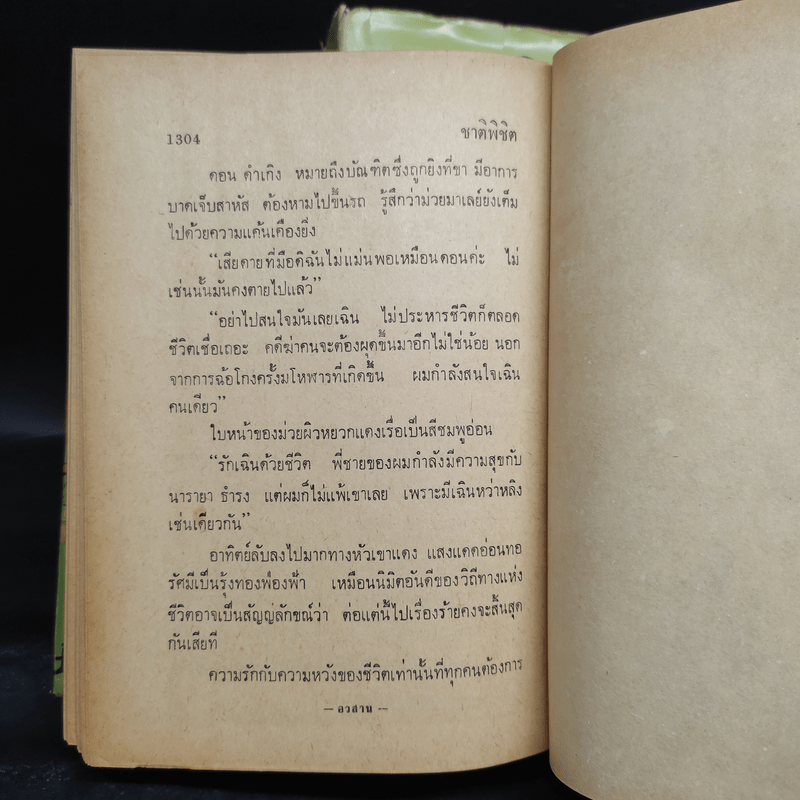 1304 ชาติพิชิต
ดอน ดำเกิง หมายถึงบัณฑิตซึ่งถูกยิงที่ขา มีอาการ
บาดเจ็บสาหัส ต้องหามไปขึ้นรถ รู้สึกว่าม่วยมาเลย์ยังเต็ม
ไปด้วยความแค้นเคืองยิ่ง
“เสียดายที่มือดิฉันไม่แม่นพอเหมือนดอนค่ะ ไม่
เช่นนั้นมันคงตายไปแล้ว”
“อย่าไปสนใจมันเลยเฉิน ไม่ประหารชีวิตก็ตลอด
ชีวิตเชื่อเถอะ คดีฆ่าคนจะต้องผุดขึ้นมาอีกไม่ใช่น้อย นอก
จากการฉ้อโกงครั้งมโหฬารที่เกิดขึ้น ผมกำลังสนใจเฉิน
คนเดียว”
ใบหน้าของม่วยผิวหยวกแดงเรื่อเป็นสีชมพูอ่อน
“รักเฉินด้วยชีวิต พี่ชายของผมกำลังมีความสุขกับ
นารายา ธำรง แต่ผมก็ไม่แพ้เขาเลย เพราะมีเฉินหว่าหลิง
เช่นเดียวกัน”
อาทิตย์ลับลงไปมากทางหัวเขาแดง แสงแดดอ่อนทอ
รัศมีเป็นรุ้งทองพ่องฟ้า เหมือนนิมิตอันดีของวิถีทางแห่ง
ชีวิตอาจเป็นสัญญลักขณ์ว่า ต่อแต่นี้ไปเรื่องร้ายคงจะสิ้นสุด
กันเสียที
ความรักกับความหวังของชีวิตเท่านั้นที่ทุกคนต้องการ
— อวสาน —